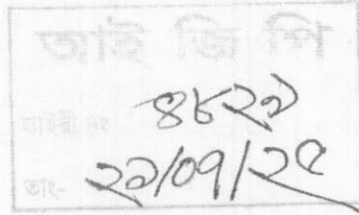 আই জি পি
ডাইরী নং ৪৮২৯
তাং- ২৯/০৭/২৫